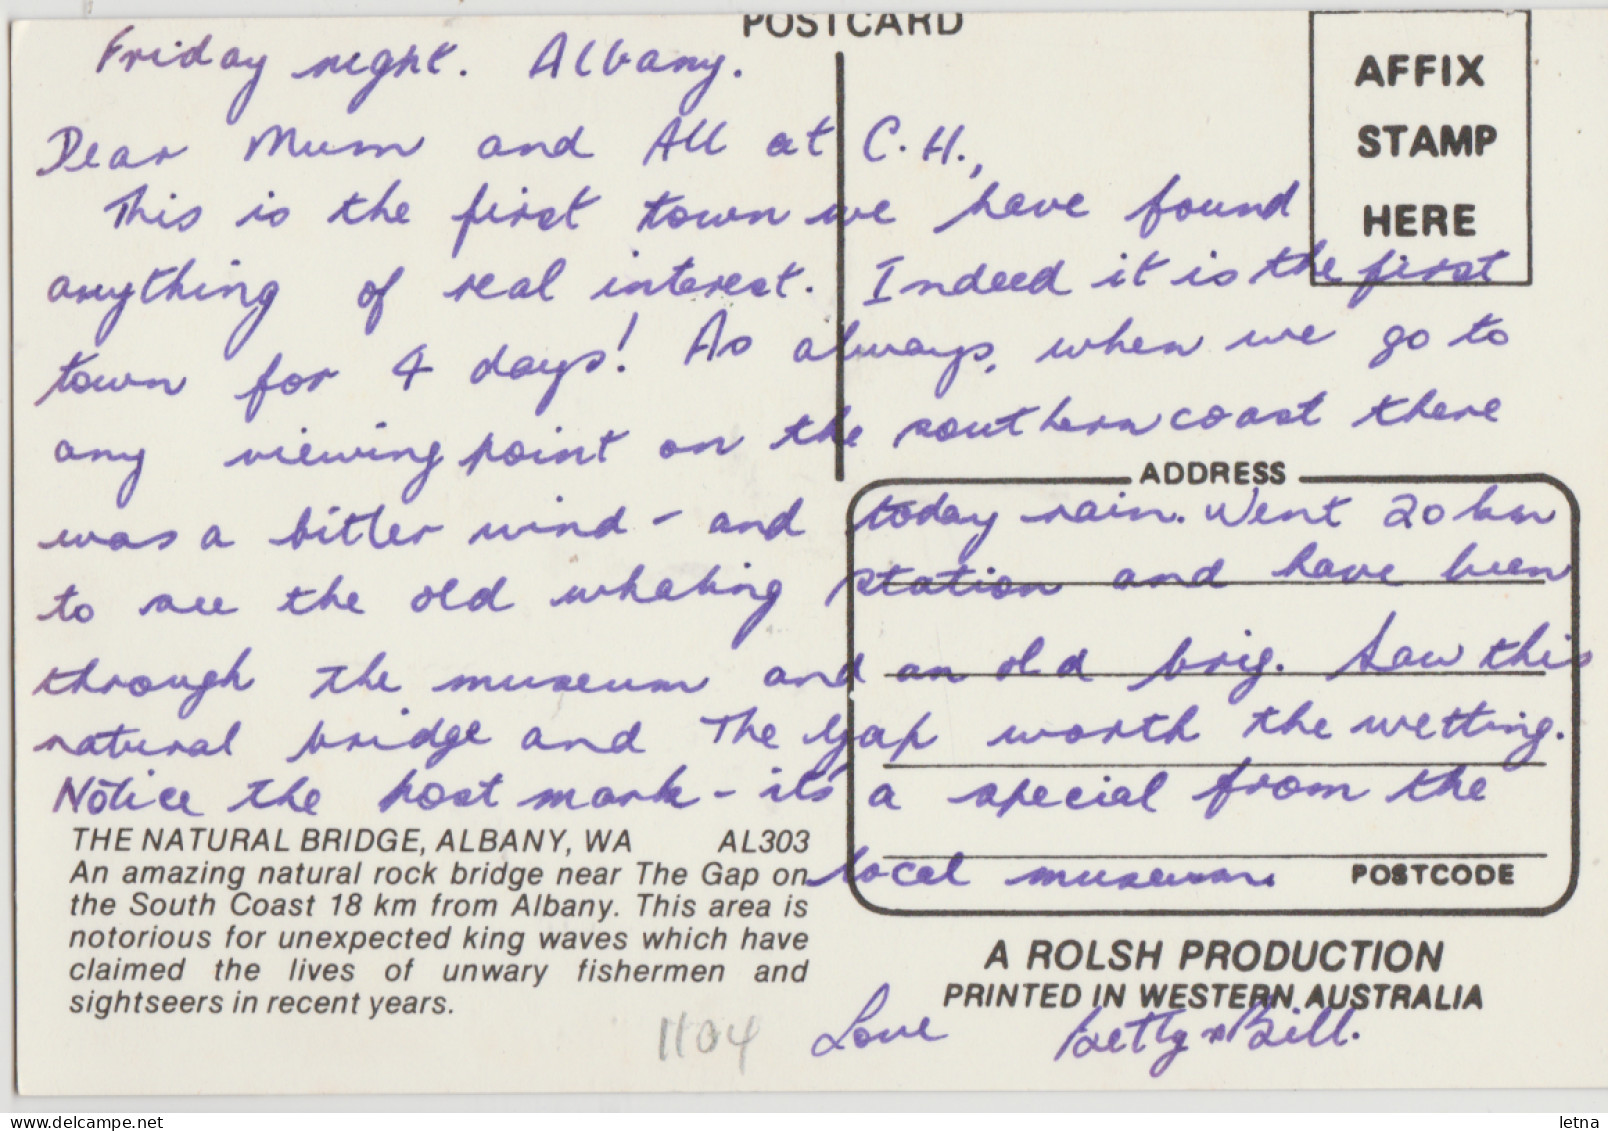 POSTCARD
AFFIX
STAMP
HERE
Friday night. Albany.
Dear Mum and All at C.H.,
This is the first town we have found
anything of real interest. Indeed it is the first
town for 4 days! As always, when we go to
any viewing point on the southern coast there
was a bitter wind - and today rain. Went 20 km
to see the old whaling station and have been
through the museum and an old brig. Saw this
natural bridge and The Gap worth the wetting.
Notice the post mark - it's a special from the
local museum.
Love Betty & Bill.
ADDRESS
POSTCODE
THE NATURAL BRIDGE, ALBANY, WA AL303
An amazing natural rock bridge near The Gap on
the South Coast 18 km from Albany. This area is
notorious for unexpected king waves which have
claimed the lives of unwary fishermen and
sightseers in recent years.
A ROLSH PRODUCTION
PRINTED IN WESTERN AUSTRALIA
1104
Delcampe.net
letna